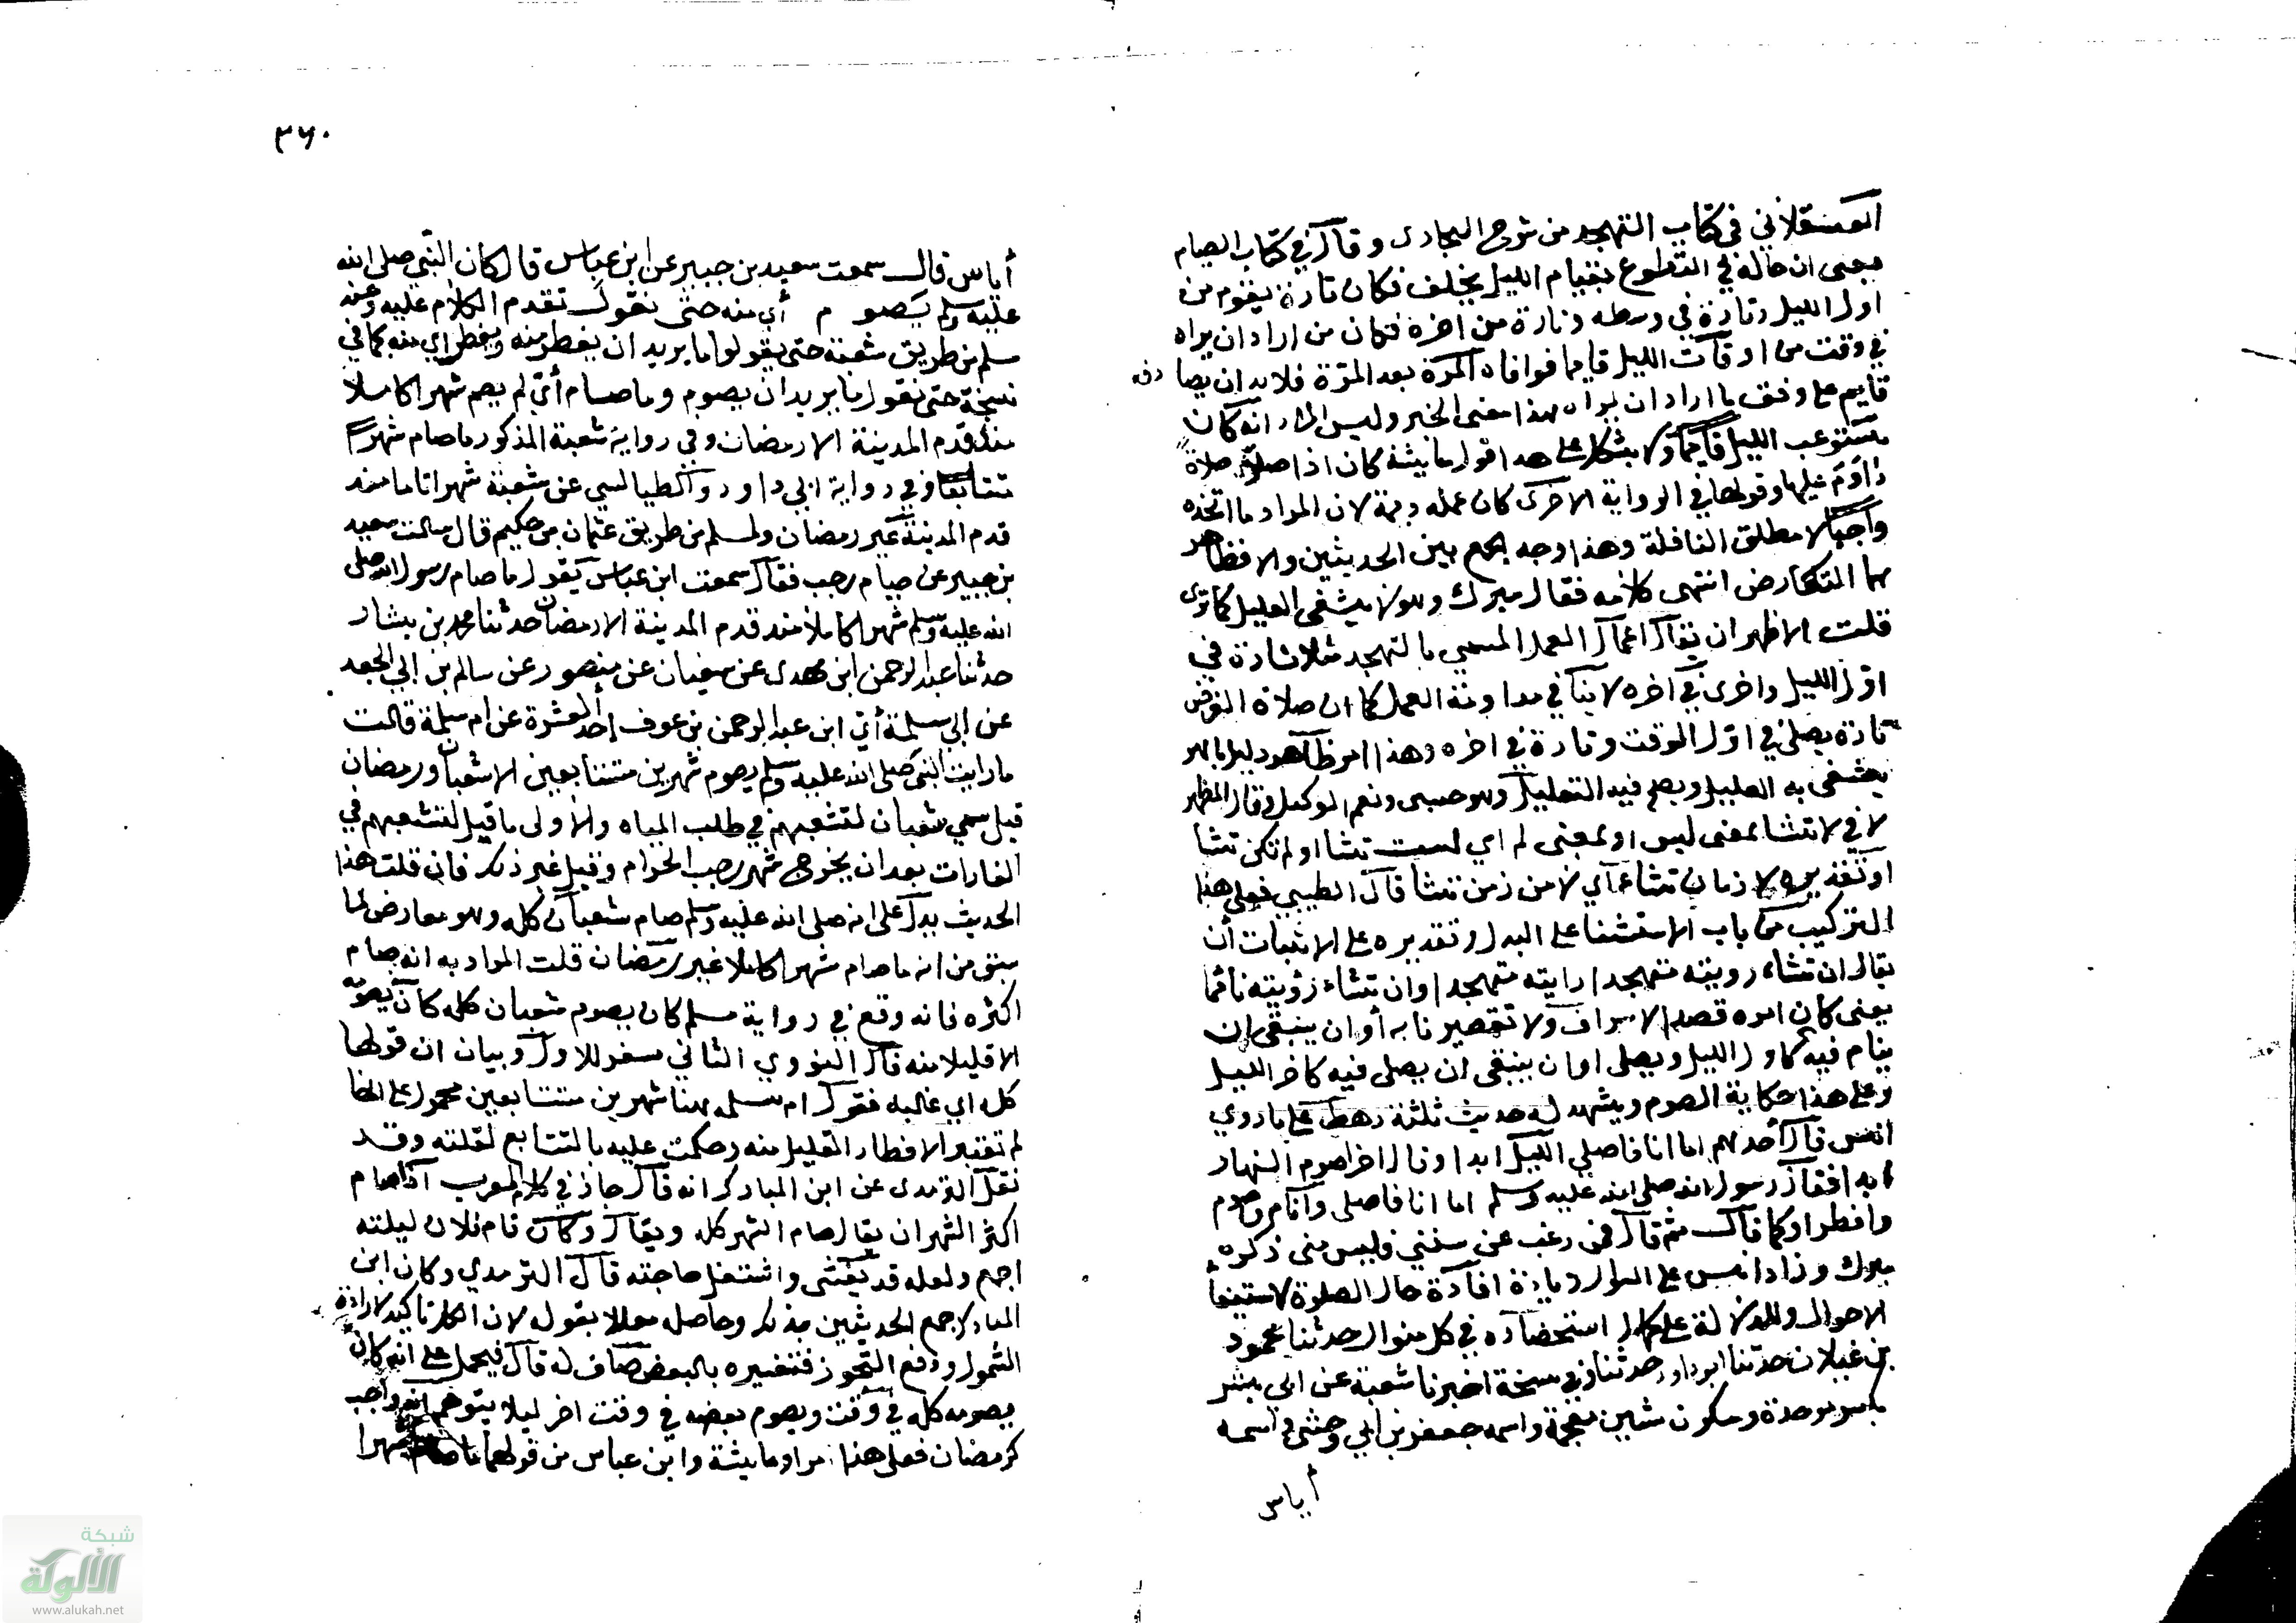 العسقلاني في كتاب التهجد من شرح البخاري وقال في كتاب الصيام
يعني ان حاله في التطوع بقيام الليل يختلف فكان تارة يقوم من
اول الليل وتارة في وسطه وتارة من اخره فكان من اراد ان يراه
في وقت من اوقات الليل قايما فوافاه المرة بعد المرة فلا بد ان يصادفه
قايم على وفق ما اراد ان يراه هذا معنى الخبر وليس المراد انه كان
يستوعب الليل قائما ولا يشكل على هذا قول عايشة كان اذا صلى صلاة
داوم عليها وقولها في الرواية الاخرى كان عمله ديمة لان المراد ما اتخذه
واجبا لا مطلق النافلة وهذا وجه الجمع بين الحديثين والا فظاهر
هما التعارض انتهى كلامه فقال ميرك وهو لا يشفي العليل كما ترى
قلت الاظهر ان يقال اعمال العمل المسمى بالتهجد مثلا تارة في
اول الليل واخرى في اخره لا ينافي مداومة العمل كما ان صلاة الفرض
تارة يصلى في اول الوقت وتارة في اخره وهذا امر ظاهر دليل باهر
يشفى به العليل ويصح فيه التعليل وهو حسبي ونعم الوكيل وقال المظهر
لا في لا تشا بمعنى ليس او بمعنى لم اي لست تشا او لم تكن تشا
او تقديره لا زمان تشاء اي لا من زمن تشا قال الطيبي فعلى هذا
التركيب من باب الاستثنا على البدل وتقديره على الاثبات أن
يقال ان تشاء رويته متهجدا رايته متهجدا وان تشاء رؤيته نائما
يعني كان امره قصدا لا اسراف ولا تقصير نابه أو ان ينبغي ان
ينام فيه كاول الليل ويصلي اوان ينبغي ان يصلى فيه كاخر الليل
وعلى هذا حكاية الصوم ويشهد له حديث ثلثة رهط على ما روي
انس قال أحدهم اما انا فاصلي الليل ابدا وقال اخر اصوم النهار
ابدا فقال رسول الله صلى الله عليه وسلم اما انا فاصلي وانام واصوم
وافطر او كما قال ثم قال فمن رغب عن سنتي فليس مني ذكره
ميرك وزاد انس على السوال زيادة افادة حال الصلوة لاستيفا
الاحوال وللدلالة على كمال استحضاره في كل منوال حدثنا محمود
بن غيلان حدثنا ابو داود حدثنا وفي نسخة اخبرنا شعبة عن ابي بشر
بكسر موحدة وسكون شين معجمة واسمه جعفر بن ابي وحشي واسمه
أياس
٢٦٠
أياس قال سمعت سعيد بن جبير عن ابن عباس قال كان النبي صلى الله
عليه وسلم يصوم أي منه حتى نقول تقدم الكلام عليه وعند
مسلم من طريق شعبة حتى يقولوا ما يريد ان يفطر منه ويفطر اي منه كما في
نسخة حتى نقول ما يريد ان يصوم وما صام أي لم يصم شهرا كاملا
منذ قدم المدينة الا رمضان وفي رواية شعبة المذكور ما صام شهرا
متتابعا وفي رواية ابي داود الطيالسي عن شعبة شهرا تاما منذ
قدم المدينة غير رمضان ولمسلم من طريق عثمان بن حكيم قال سالت سعيد
بن جبير عن صيام رجب فقال سمعت ابن عباس يقول ما صام رسول الله صلى
الله عليه وسلم شهرا كاملا منذ قدم المدينة الا رمضان حدثنا محمد بن بشار
حدثنا عبد الرحمن ابن مهدى عن سفيان عن منصور عن سالم بن ابي الجعد
عن ابي سلمة أي ابن عبد الرحمن بن عوف احد العشرة عن ام سلمة قالت
ما رايت النبي صلى الله عليه وسلم يصوم شهرين متتابعين الا شعبان ورمضان
قيل سمي شعبان لتشعبهم في طلب المياه والاولى ما قيل لتشعبهم في
الغارات بعد ان يخرج شهر رجب الحرام وقيل غير ذلك فان قلت هذا
الحديث يدل على انه صلى الله عليه وسلم صام شعبان كله وهو معارض لما
سبق من انه ما صام شهرا كاملا غير رمضان قلت المراد به انه صام
اكثره فانه وقع في رواية مسلم كان يصوم شعبان كله كان يصومه
الا قليلا منه قال النووي الثاني مفسر للاول وبيان ان قولها
كله اي غالبه فقول ام سلمه هنا شهرين متتابعين محمول على انها
لم تعتبر الافطار القليل منه وحكمت عليه بالتتابع لقلته وقد
نقل الترمدى عن ابن المبارك انه قال جاز في كلام العرب اذا صام
اكثر الشهر ان يقال صام الشهر كله ويقال وكان قام فلان ليلته
اجمع ولعله قد تعشى واشتغل حاجته قال الترمدي وكان ابن
المبارك جمع الحديثين بذلك وحاصله معللا بقوله لان الكل تاكيد لارادة
الشمول ودفع التجوز فتفسيره بالبعض مناف له قال فيحمل على انه كان
يصومه كله في وقت ويصوم بعضه في وقت اخر ليلا يتوهم انه واجب
كرمضان فعلى هذا مراد عايشة وابن عباس من قولهما ما صام شهرا
شبكة
الألوكة
www.alukah.net